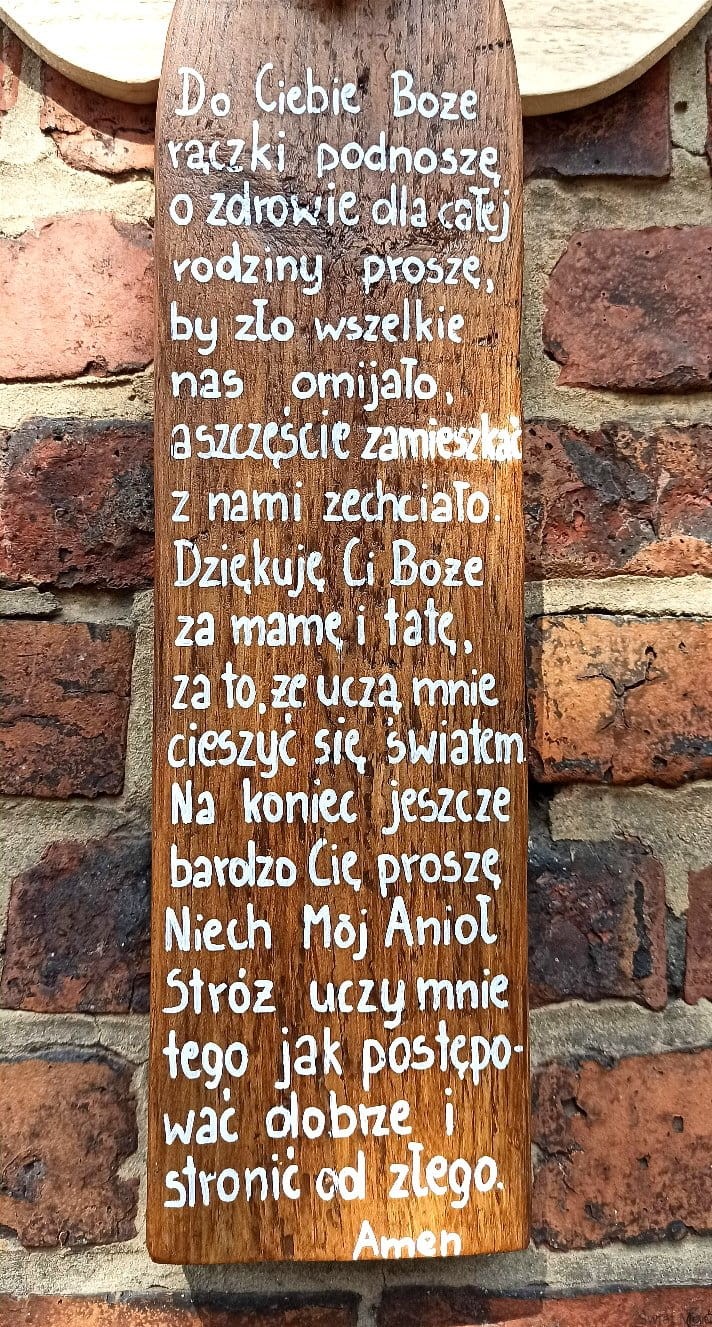 Do Ciebie Boże
rączki podnoszę
o zdrowie dla całej
rodziny proszę,
by zło wszelkie
nas omijało,
a szczęście zamieszkać
z nami zechciało.
Dziękuję Ci Boże
za mamę i tatę,
za to, że uczą mnie
cieszyć się światem
Na koniec jeszcze
bardzo Cię proszę
Niech Mój Anioł
Stróż uczy mnie
tego jak postępo-
wać dobrze i
stronić od złego.
Amen